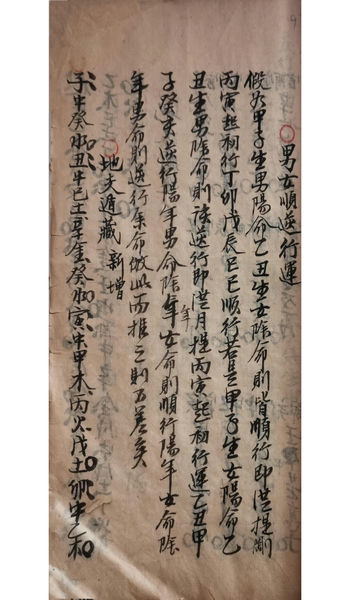 男女順逆行運
假如甲子生男陽命乙丑生女陰命則皆順行即從提剛
丙寅起初行丁卯戊辰己巳順行若是甲子生女陽命乙
丑生男陰命則該逆行即從月提丙寅起初行運乙丑甲
子癸亥逆行陽年男命陰年女命則順行陽年女命陰
年男命則逆行余命倣此而推之則不差矣
地支遁藏 新增
子中癸水丑中己土辛金癸水寅中甲木丙火戊土卯中乙木